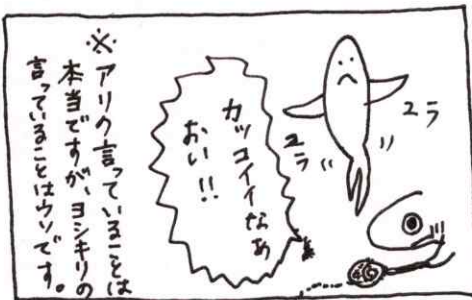 ユラ
ユラ
カッコイイなあ
おい!!
※アリク言っていることは
本当ですが、ヨシキリの
言っていることはウソです。